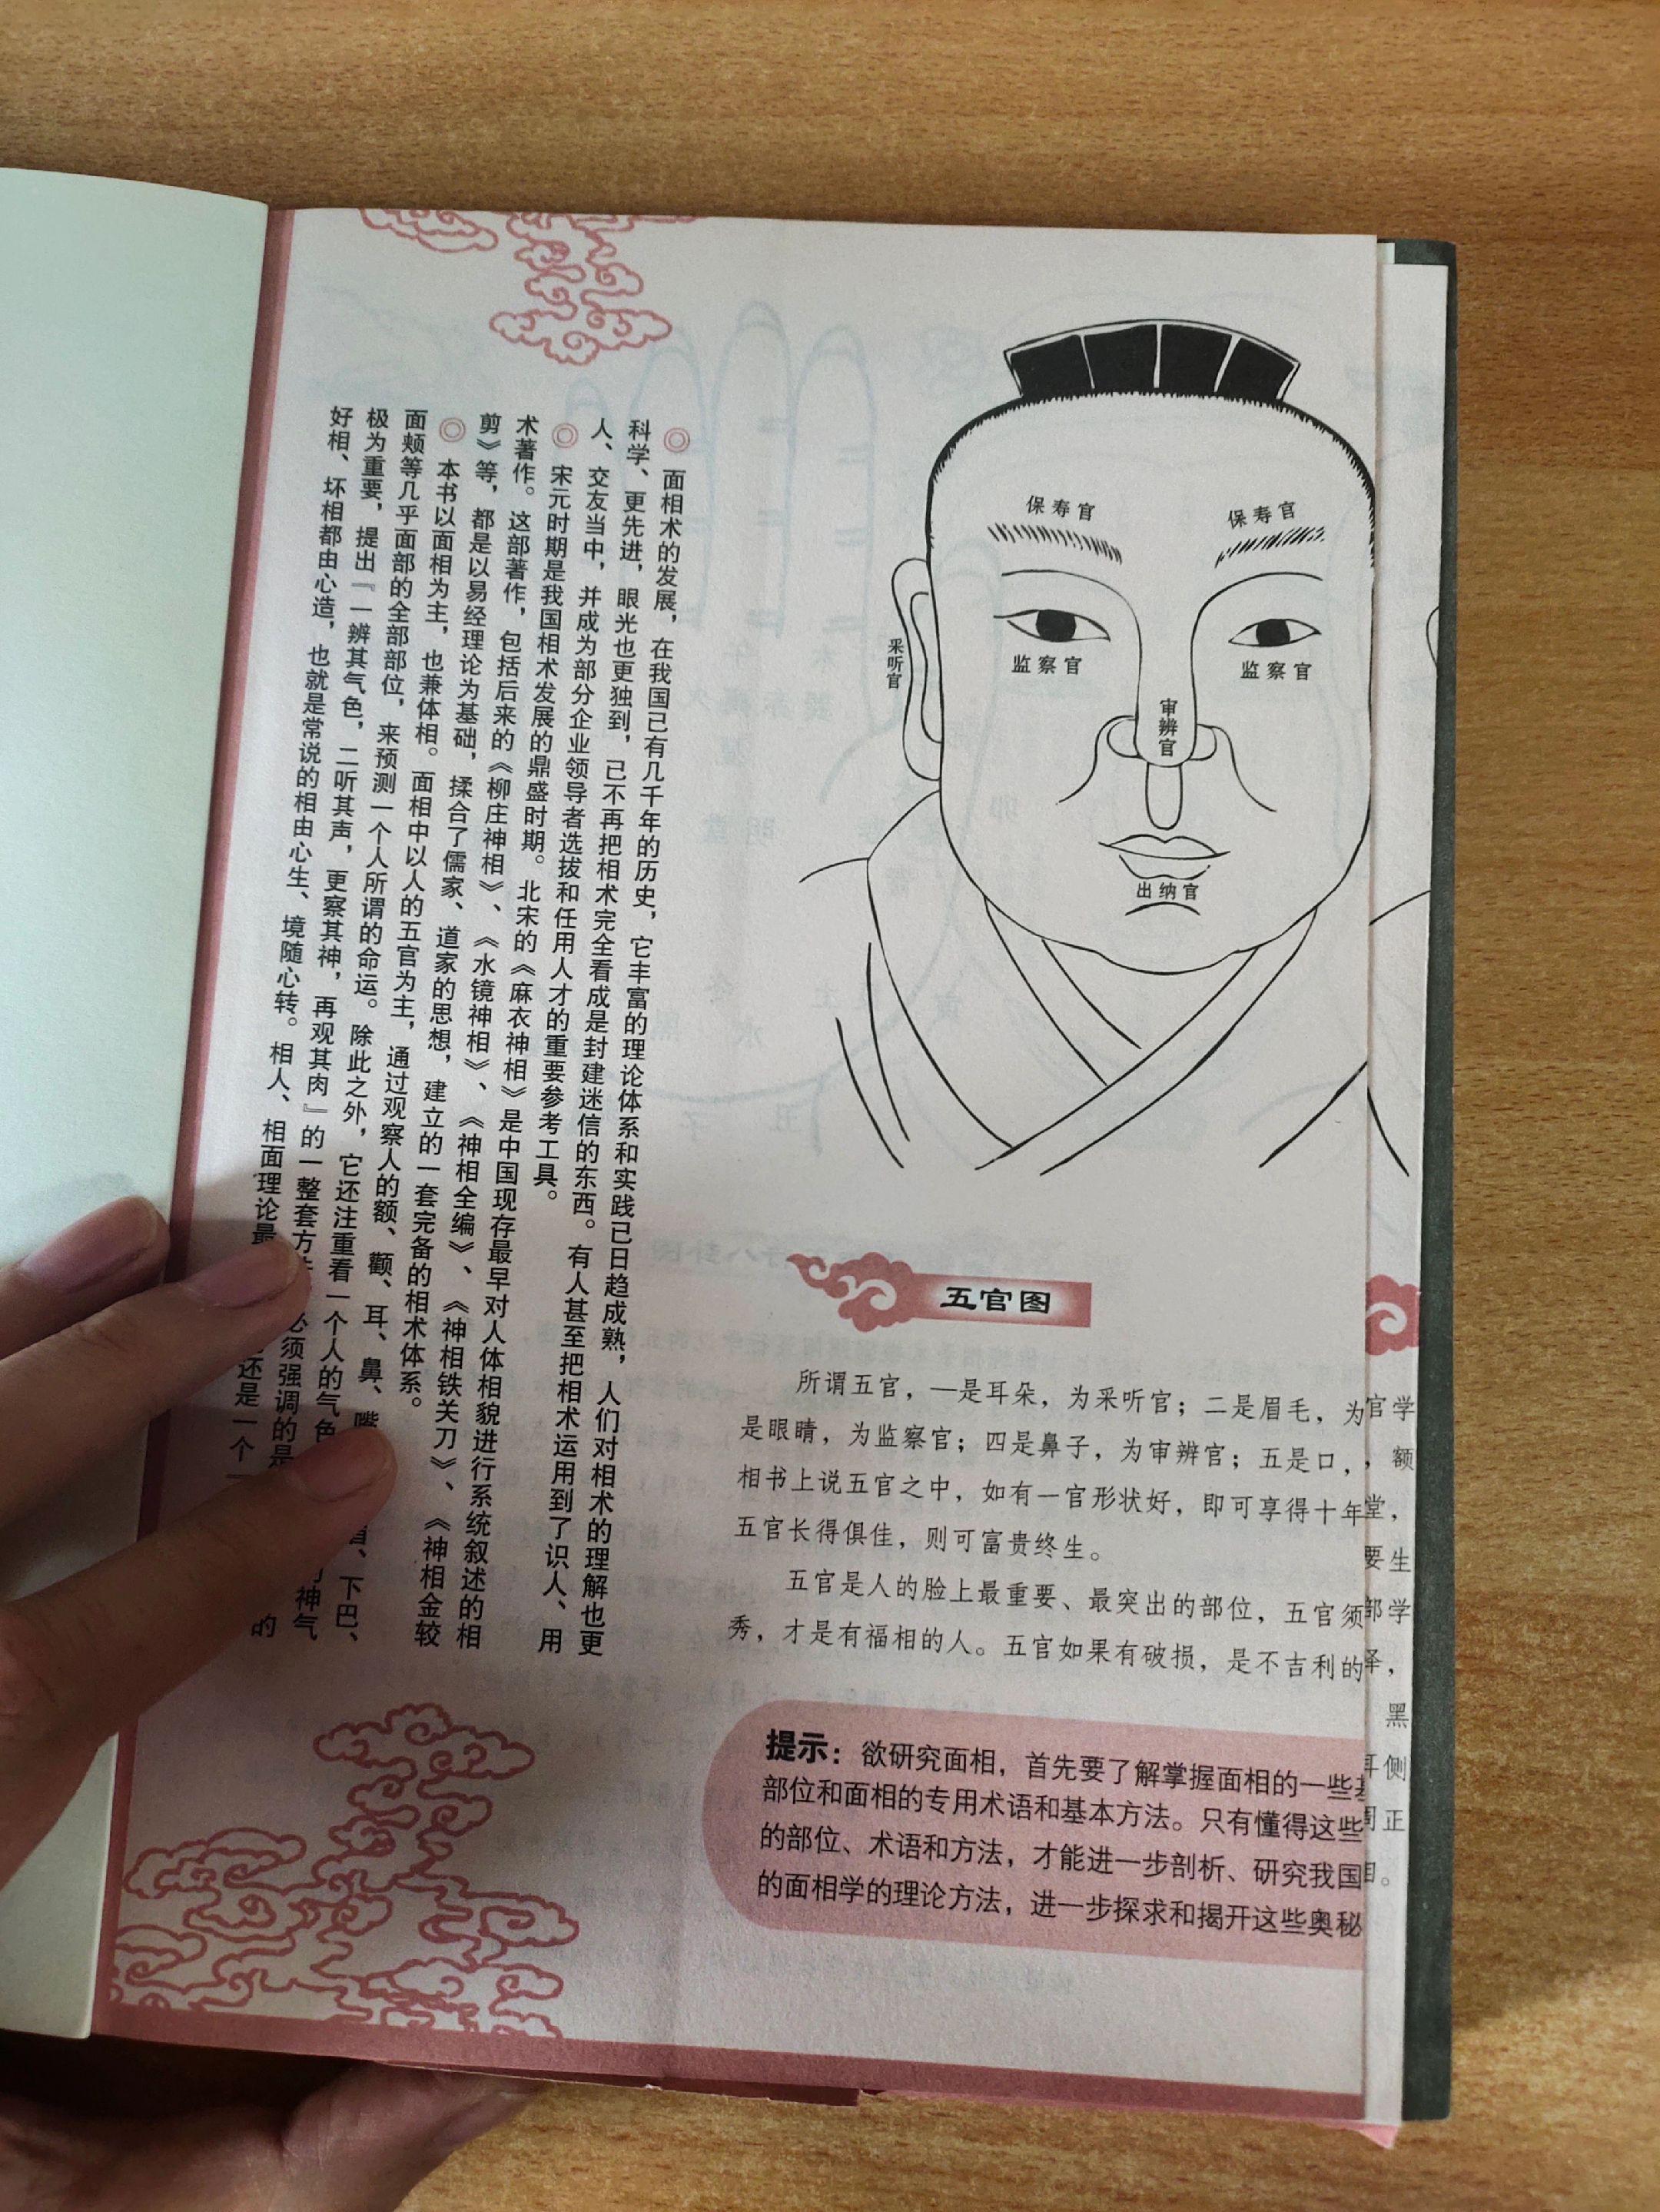 ◎ 面相术的发展，在我国已有几千年的历史，它丰富的理论体系和实践已日趋成熟，人们对相术的理解也更
科学、更先进，眼光也更独到，已不再把相术完全看成是封建迷信的东西。有人甚至把相术运用到了识人、用
人、交友当中，并成为部分企业领导者选拔和任用人才的重要参考工具。
◎ 宋元时期是我国相术发展的鼎盛时期。北宋的《麻衣神相》是中国现存最早对人体相貌进行系统叙述的相
术著作。这部著作，包括后来的《柳庄神相》、《水镜神相》、《神相全编》、《神相铁关刀》、《神相金较
剪》等，都是以易经理论为基础，揉合了儒家、道家的思想，建立的一套完备的相术体系。
◎ 本书以面相为主，也兼体相。面相中以人的五官为主，通过观察人的额、颧、耳、鼻、嘴、下巴、
面颊等几乎面部的全部部位，来预测一个人所谓的命运。除此之外，它还注重看一个人的气色、神气
极为重要，提出『一辨其气色，二听其声，更察其神，再观其肉』的一整套方必须强调的是
好相、坏相都由心造，也就是常说的相由心生、境随心转。相人、相面理论最还是一个的
保寿官
保寿官
采听官
监察官
监察官
审辨官
出纳官
五官图
所谓五官，一是耳朵，为采听官；二是眉毛，为
是眼睛，为监察官；四是鼻子，为审辨官；五是口，
相书上说五官之中，如有一官形状好，即可享得十年
五官长得俱佳，则可富贵终生。
五官是人的脸上最重要、最突出的部位，五官须
秀，才是有福相的人。五官如果有破损，是不吉利的
提示：欲研究面相，首先要了解掌握面相的一些
部位和面相的专用术语和基本方法。只有懂得这些
的部位、术语和方法，才能进一步剖析、研究我国
的面相学的理论方法，进一步探求和揭开这些奥秘
官学
，额
堂，
要生
部学
，
黑
侧
正
。